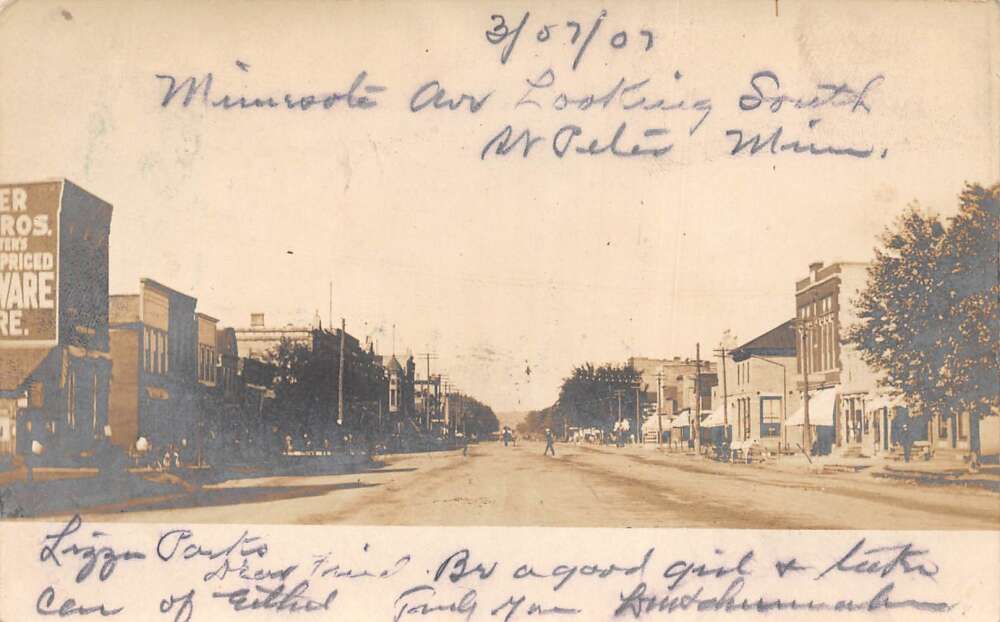 3/07/07
Minnesota Ave Looking South
St Peter Minn.
ER
ROS.
TER'S
PRICED
WARE
RE.
Lizzie Parks
Dear Friend Be a good girl & take
Care of Eithel Truly Your